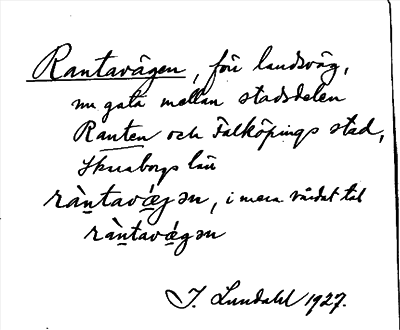 Rantavägen, förr landsväg,
nu gata mellan stadsdelen
Ranten och Falköpings stad,
Skaraborgs län
ràntavǽgǝn, i mera vårdat tal
ràntavǽgǝn
J. Lundahl 1927.